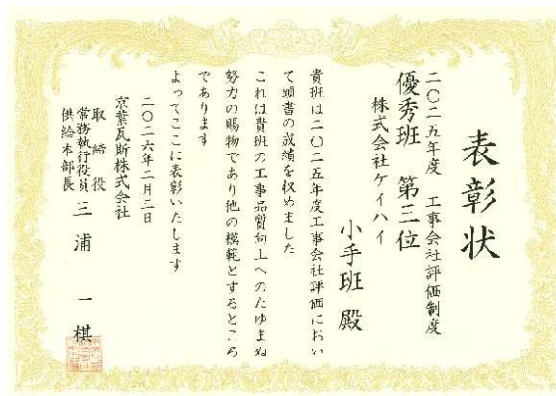 表彰状
二〇二五年度 工事会社評価制度
優秀班 第三位
株式会社ケイハイ
小手班 殿
貴班は二〇二五年度工事会社評価におい
て頭書の成績を収めました
これは貴班の工事品質向上へのたゆまぬ
努力の賜物であり他の模範とするところ
であります
よってここに表彰いたします
二〇二六年二月二日
京葉瓦斯株式会社
取締役
常務執行役員
供給本部長
三浦 一棋